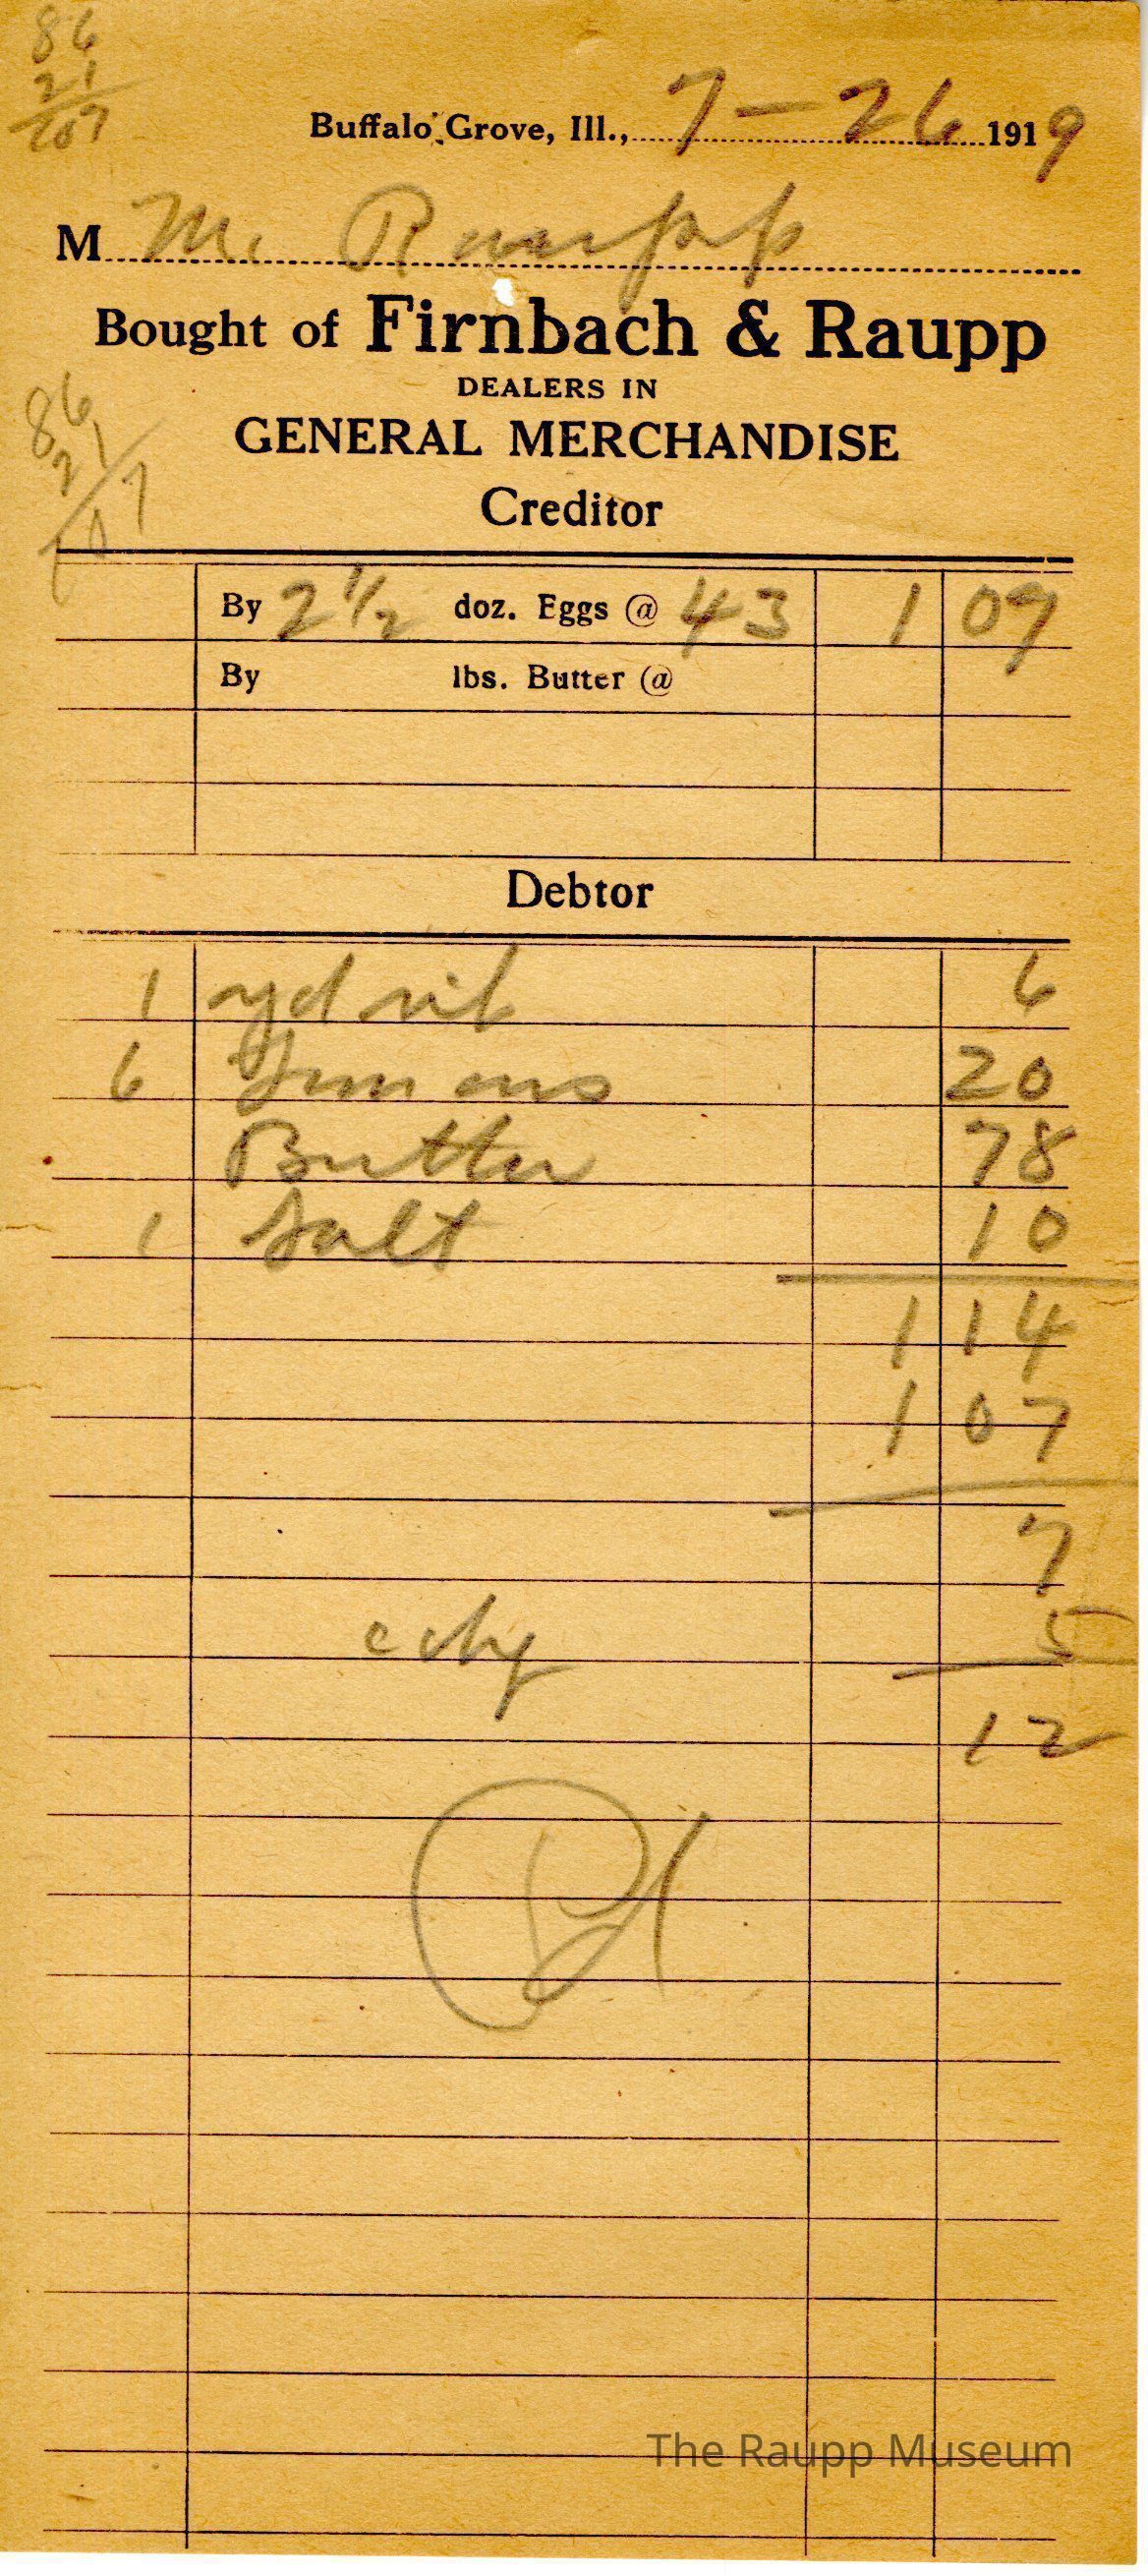 86
21
107
Buffalo Grove, Ill., 7-26 1919
M M. Raupp
Bought of Firnbach & Raupp
DEALERS IN
GENERAL MERCHANDISE
86
21
107
Creditor
By 2 1/2 doz. Eggs @ 43 1 09
By lbs. Butter @
Debtor
1 yd rib 6
6 20
Butter 78
1 Salt 10
1 14
1 07
7
5
12
Pd
The Raupp Museum